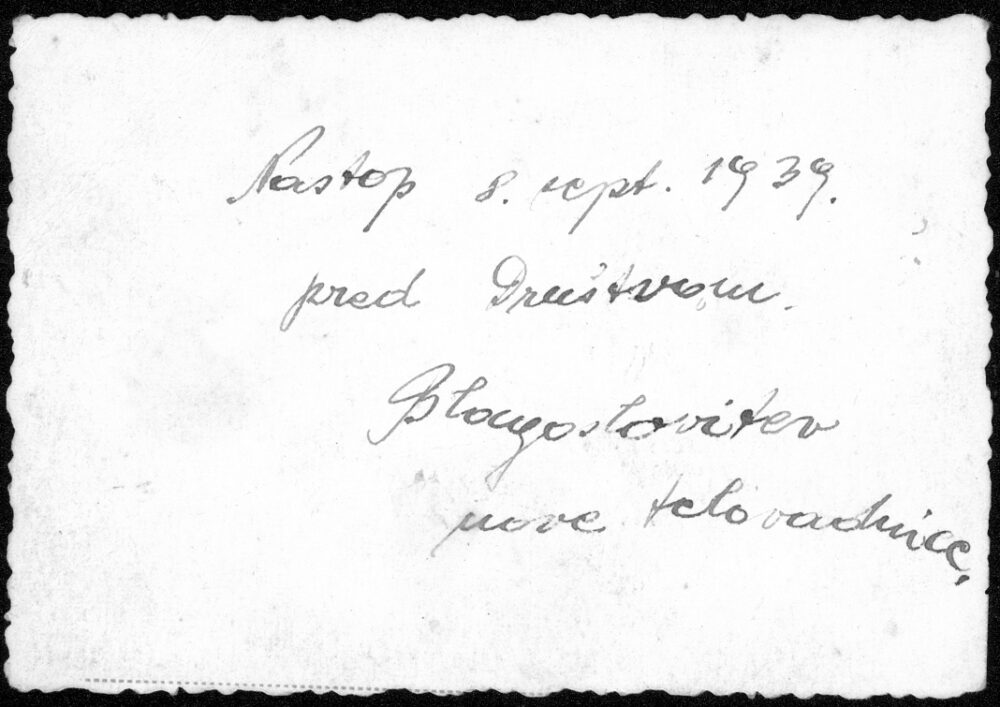 Nastop 8. sept. 1939.
pred Društvom.
Blagoslovitev
nove telovadnice.